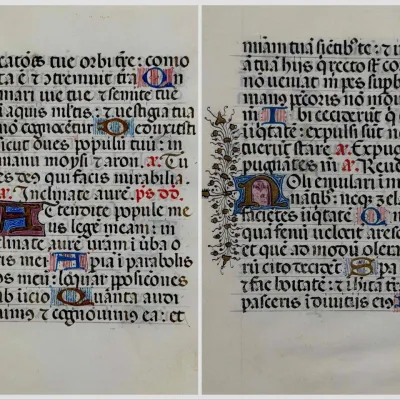 catōes tue orbi tr̄e: como
ta ē ⁊ ɔtremuit tr̄a In
mari vie tue ⁊ semite tue
ī aquis m̄ltis: ⁊ uestigia tua
nō cognoscētur Deduxisti
sicut oues populū tuū: in
manu moysi ⁊ aron. a. Tu
es deus qui facis mirabilia.
a. Inclinate aurē. ps dd̄.
Attendite popule me
us legē meam: in
clinate aurē vr̄am ī ūba o
ris mei Apiā ī parabolis
os meū: loq̄uar pposicōnes
ab īicio Quanta audi
uimꝰ ⁊ cognouimꝰ ea: et
niām tuā siētib te: ⁊
ā tuā hijs q̄ recto sūt co
nō ueniat m̄ pes supb
manꝰ pctoris nō mou
m̄ Ibi ceciderūt q̄
iīqtatē: expulsi sūt n
tuerūt stare a. Expu
pugnātes m̄ a. Reue
Noli emulari ī m
nātib: neqꝫ zel
facietes iīqtatē Qm̄
qua fenū uelocit̄ aresc
et qūe ad modū olera
rū cito decidēt Spa
⁊ fac boītatē: ⁊ īhita
pasceris ī diuitijs eiꝰ